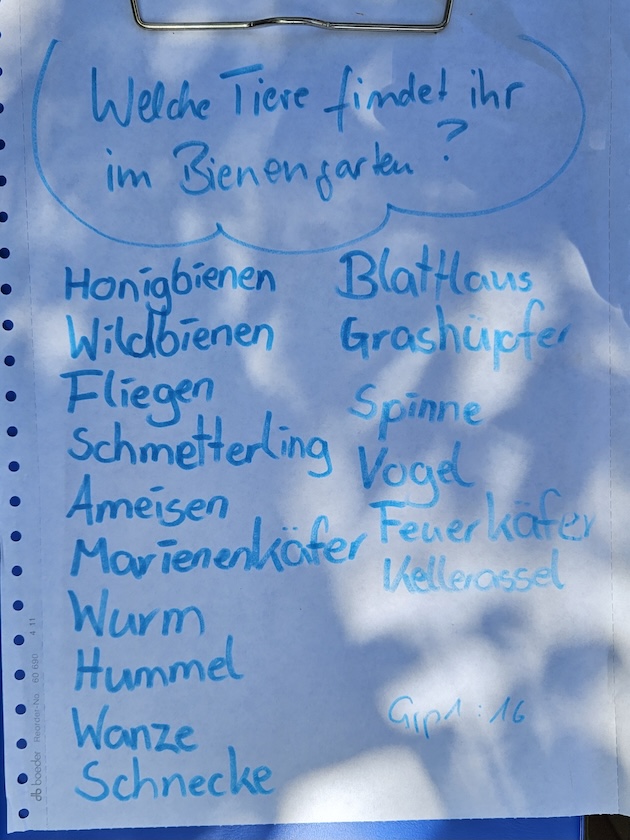 Welche Tiere findet ihr
im Bienengarten?
Honigbienen
Wildbienen
Fliegen
Schmetterling
Ameisen
Marienenkäfer
Wurm
Hummel
Wanze
Schnecke
Blattlaus
Grashüpfer
Spinne
Vogel
Feuerkäfer
Kellerassel
Grp1: 16
boeder Reorder-No. 60 690 4.11